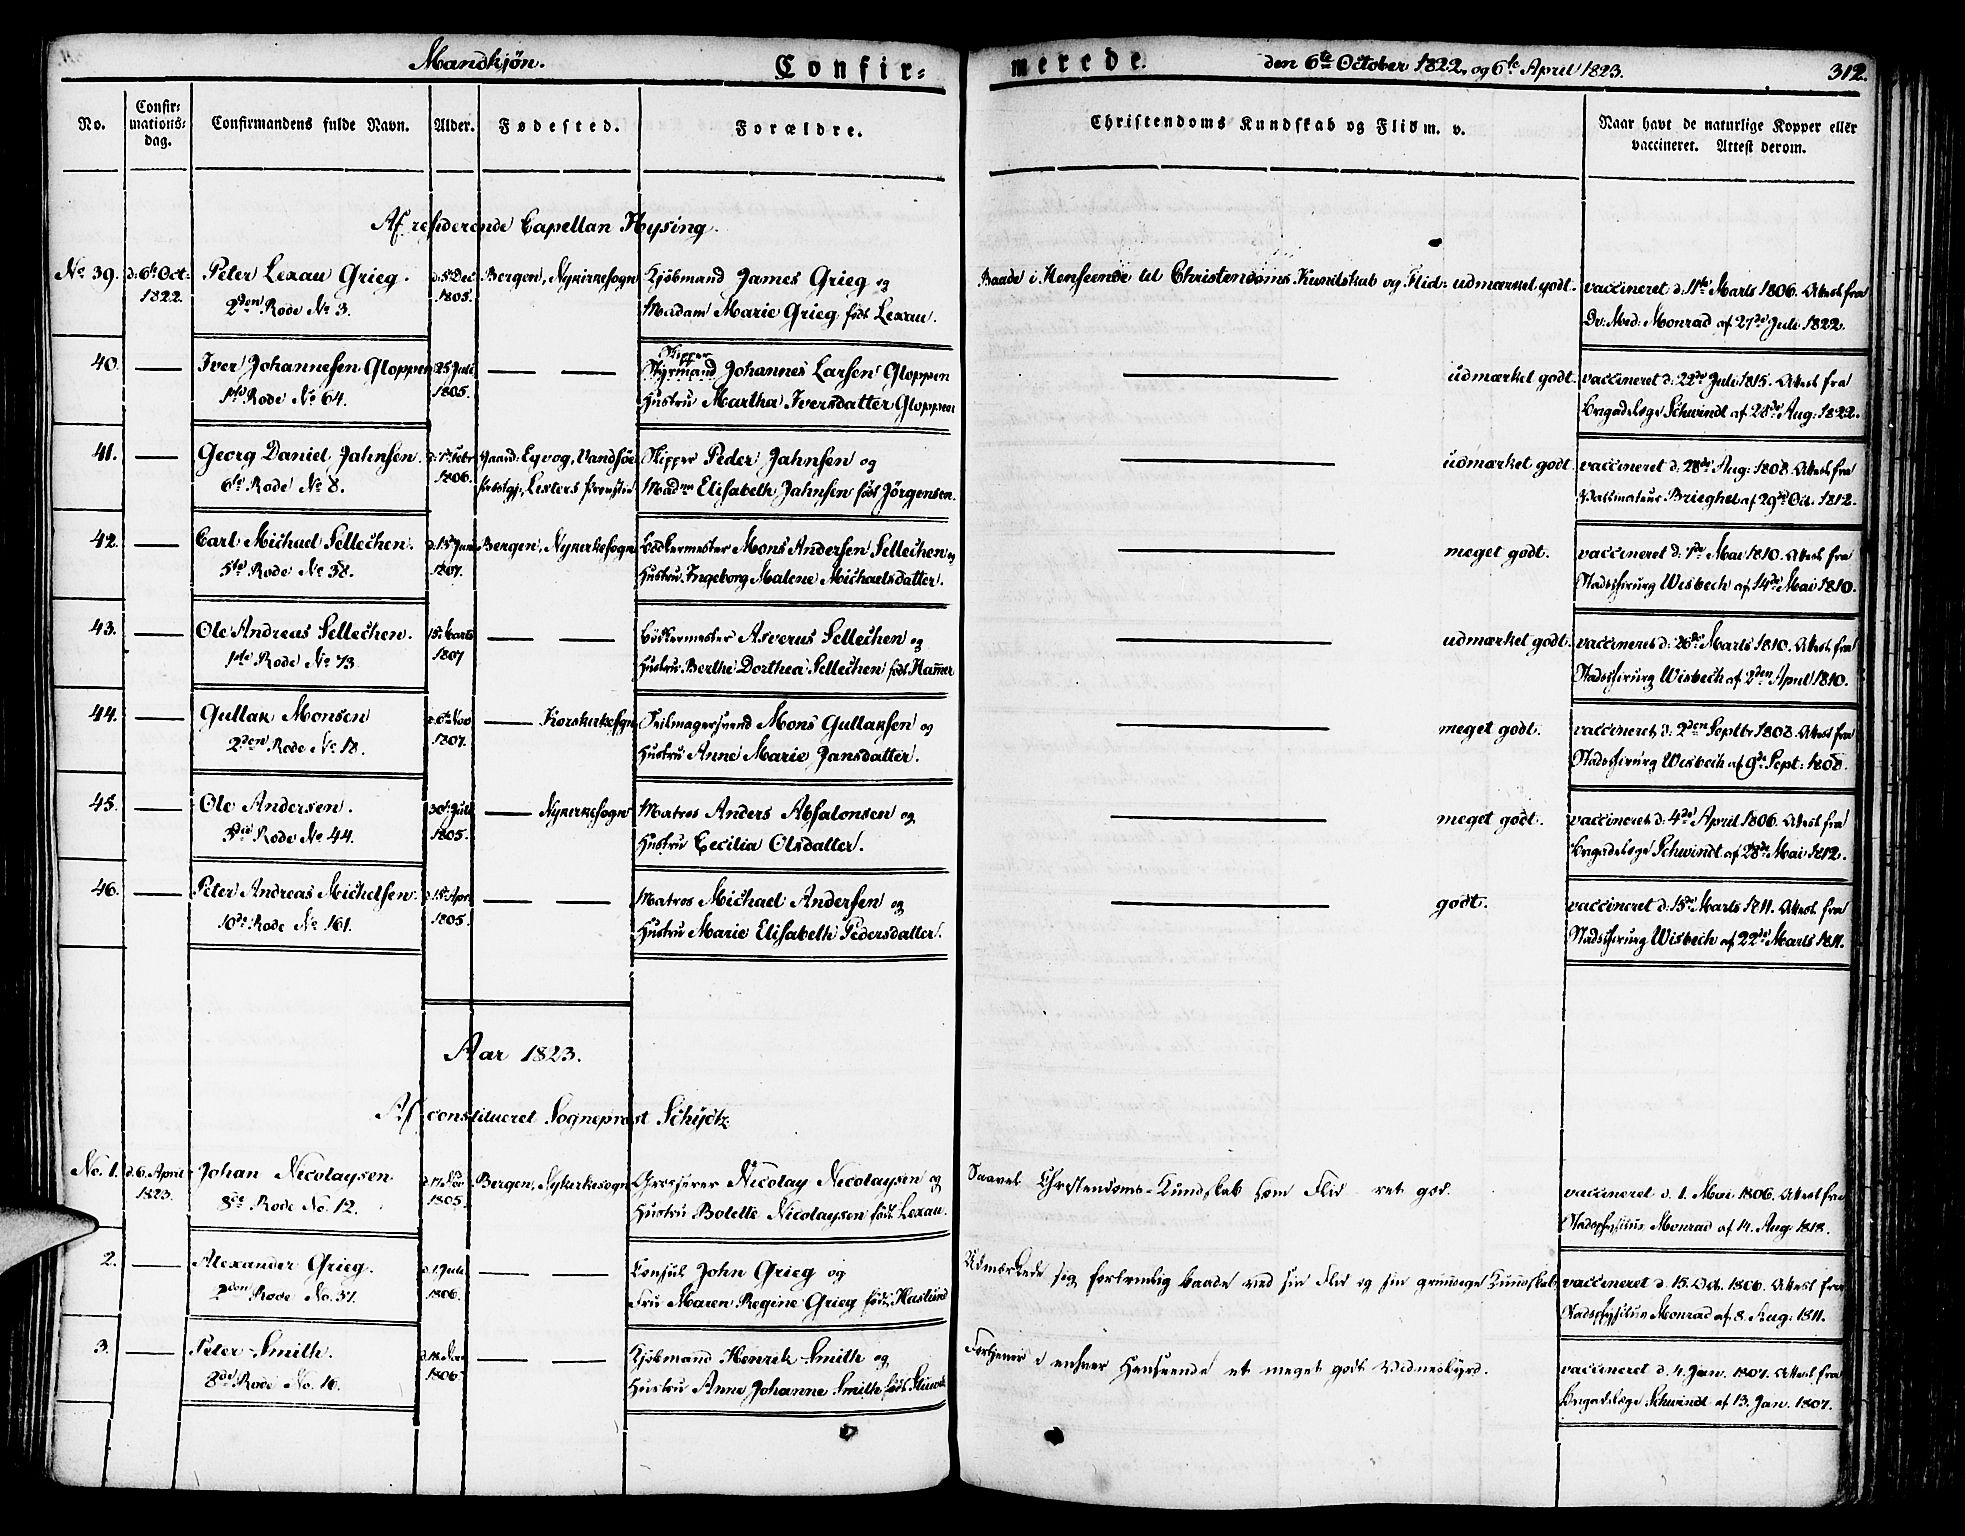 Mandkjøn.
Confir=
merede.
den 6te October 1822, og 6te April 1823.
312.
No.
Confir=
mations=
dag.
Confirmandens fulde Navn.
Alder.
Fødested.
Forældre.
Christendoms Kundskab og Flid m. v.
Naar havt de naturlige Kopper eller
vaccineret. Attest derom.
Af residerende Capellan Hysing.
No 39. d: 6te Oct: Peter Lexau Grieg. d: 5te Dec Bergen, Nykirkesogn Kjøbmand James Grieg og Baade i Henseende til Christendoms Kundskab og Flid: udmærket godt. vaccineret d: 11te Marts 1806. Attest fra
1822. 2den Rode No 3. 1805. Madam Marie Grieg født Lexau. Dr: Med: Monrad af 27de Juli 1822.
Skipper
40. Iver Johannesen Gloppen 25 Juli Styrmand Johannes Larsen Gloppen udmærket godt. vaccineret d: 22de Juli 1815. Attest fra
1ste Rode No 64. 1805. Hustru Martha Iversdatter Gloppen Brigadelæge Schwindt af 28de Aug: 1822.
41. Georg Daniel Jahnsen. Febr Gaard: Eyvog, Vandsøe Skipper Peder Jahnsen og udmærket godt vaccineret d: 28de Aug: 1808. Attest fra
6te Rode No 8. 1806. Præstgj: Listers Provstie Madm Elisabeth Jahnsen født Jörgensen. Brieghel af 29de Oct. 1812.
42. Carl Michael Sellechen. d: 15 Juni Bergen, Nykirkesogn Bødkermester Mons Andersen Sellechen og meget godt. vaccineret d: 1ste Mai 1810. Attest fra
5te Rode No 38. 1807. Hustru Ingeborg Malene Michaelsdatter. Stadschirurg Wisbech af 14de Mai 1810.
43. Ole Andreas Sellechen. 15 Marts Bødkermester Asverus Sellechen og udmærket godt. vaccineret d: 26de Marts 1810. Attest fra
1ste Rode No 73. 1807 Hustru Berthe Dorthea Sellechen født Hammer Stadschirurg Wisbech af 2den April 1810.
44. Gullak Monsen d: 6te Nov Korskirkesogn Seilmagersvend Mons Gullaksen og meget godt. vaccineret d: 2den Septbr 1808. Attest fra
2den Rode No 18. 1807. Hustru Anne Marie Jansdatter. Stadschirurg Wisbech af 9de Sept: 1808.
45. Ole Andersen. 30te Juli Nykirkesogn Matros Anders Absalonsen og meget godt. vaccineret d: 4de April 1806. Attest fra
3die Rode No 44. 1805. Hustru Cecilia Olsdatter. Brigadelæge Schwindt af 28de Mai 1812.
46. Peter Andreas Michelsen. d: 15 Apr. Matros Michael Andersen og godt. vaccineret d: 15de Marts 1811. Attest fra
10de Rode No 161. 1805. Hustru Marie Elisabeth Pedersdatter. Stadschirurg Wisbech af 22de Marts 1811.
Aar 1823.
Af constitueret Sogneprest Schydtz.
No. 1. d. 6. April Johan Nicolaysen d. 17. Bergen, Nykirkesogn Grosserer Nicolay Nicolaysen og Saavel Christendoms-Kundskab som Flid ret god. vaccineret d. 1. Mai 1806. Attest fra
1823. 8de Rode No. 12. 1805. Hustru Bolette Nicolaysen født Lexau. Stadsphysicus Monrad af 14. Aug: 1818.
2. Alexander Grieg. d. 1. Juli Consul John Grieg og Udmærkede sig fortrinlig baade ved sin Flid og sin grundige Kundskab. vaccineret d. 15. Oct. 1806. Attest fra
2den Rode No. 37. 1806. Fru Maren Regine Grieg født Haslund Stadsphysicus Monrad af 8. Aug: 1811.
3. Peter Smith. 1806. Kjøbmand Henrik Smith og Fortjener i enhver Henseende et meget godt Vidnesbyrd. vaccineret d. 4. Jan. 1807. Attest fra
8de Rode No. 16. Hustru Anne Johanne Smith født Brigadelæge Schwindt af 13. Jan. 1807.